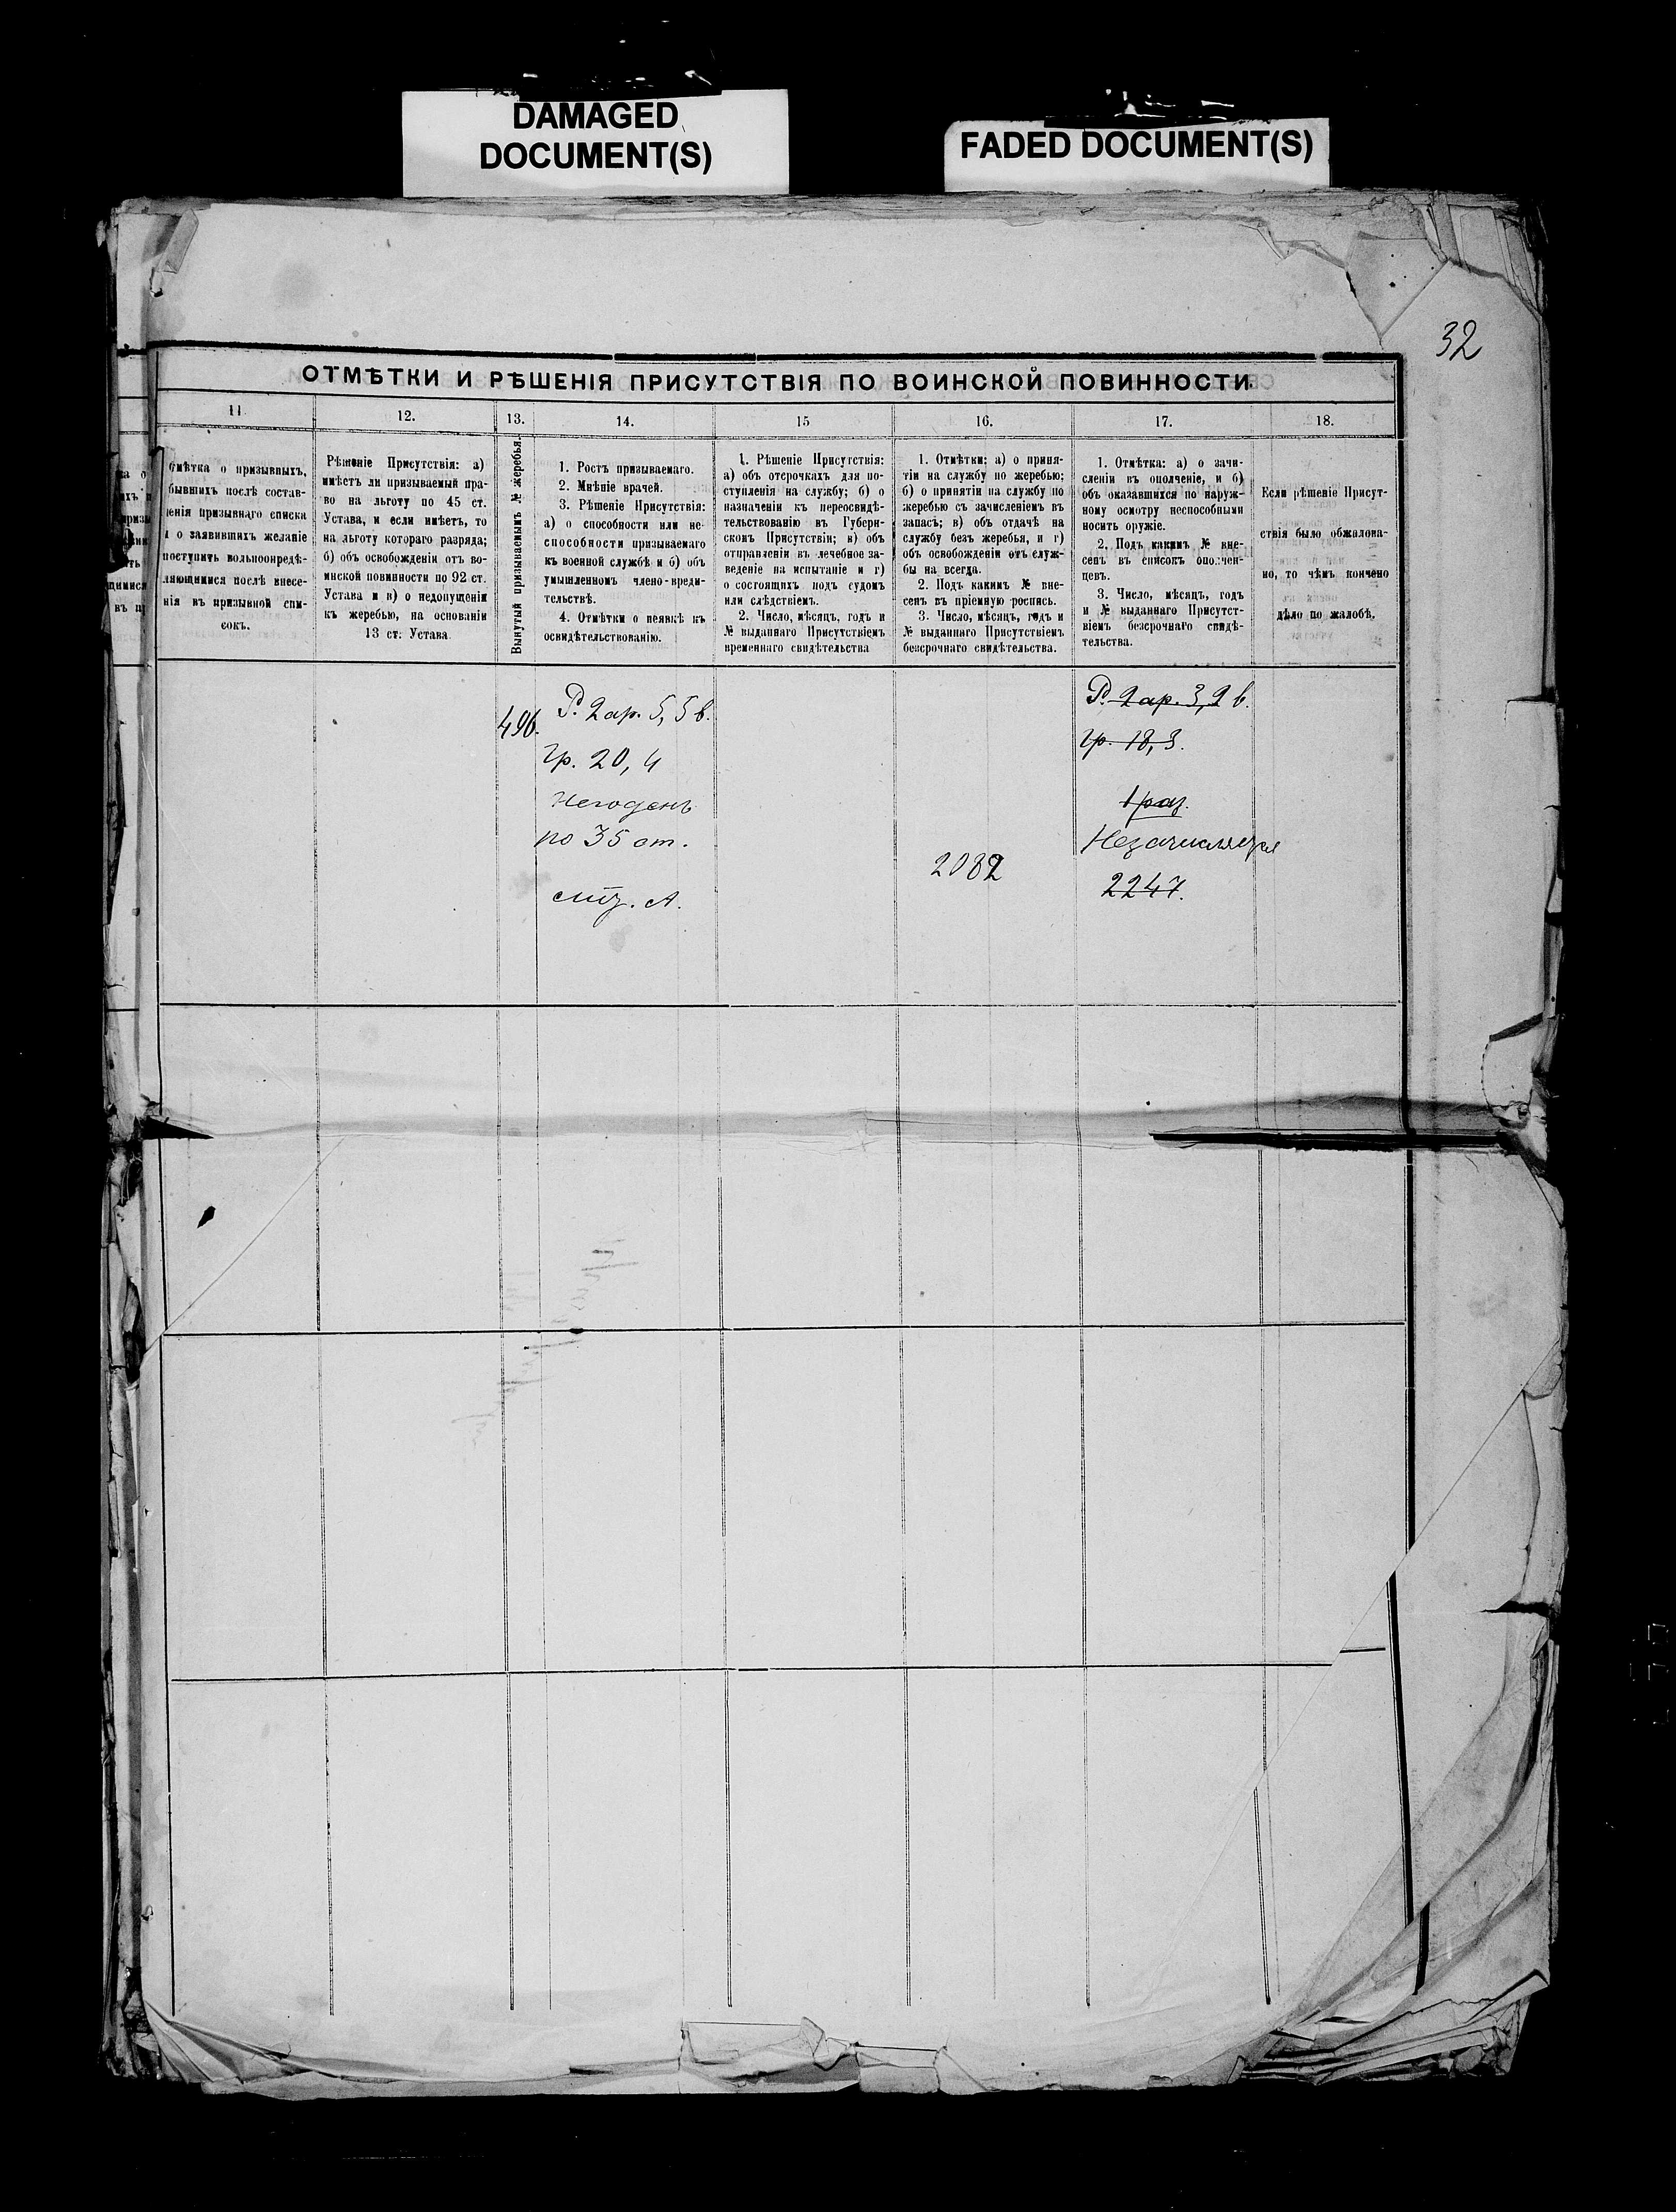 DAMAGED
DOCUMENT(S)
FADED DOCUMENT(S)
32
ОТМѢТКИ И РѢШЕНІЯ ПРИСУТСТВІЯ ПО ВОИНСКОЙ ПОВИННОСТИ.
11
12.
13.
14.
15
16.
17.
18.
отмѣтка о призывныхъ,
бывшихъ послѣ состав-
ленія призывнаго списка
и о заявившихъ желаніе
поступить вольноопредѣ-
ляющимися послѣ внесе-
нія въ призывной спи-
сокъ.
Рѣшеніе Присутствія: а)
имѣетъ ли призываемый пра-
во на льготу по 45 ст.
Устава, и если имѣетъ, то
на льготу котораго разряда;
б) объ освобожденіи отъ во-
инской повинности по 92 ст.
Устава и в) о недопущеніи
къ жеребью, на основаніи
13 ст. Устава
Вынутый призываемымъ № жеребья.
1. Ростъ призываемаго.
2. Мнѣніе врачей.
3. Рѣшеніе Присутствія:
а) о способности или не-
способности призываемаго
къ военной службѣ и б) объ
умышленномъ члено-вреди-
тельствѣ.
4. Отмѣтки о неявкѣ къ
освидѣтельствованію.
1. Рѣшеніе Присутствія:
а) объ отсрочкахъ для по-
ступленія на службу; б) о
назначеніи къ переосвидѣ-
тельствованію въ Губерн-
скомъ Присутствіи; в) объ
отправленіи въ лечебное за-
веденіе на испытаніе и г)
о состоящихъ подъ судомъ
или слѣдствіемъ.
2. Число, мѣсяцъ, годъ и
№ выданнаго Присутствіемъ
временнаго свидѣтельства
1. Отмѣтки: а) о приня-
тіи на службу по жеребью;
б) о принятіи на службу по
жеребью съ зачисленіемъ въ
запасъ; в) объ отдачѣ на
службу безъ жеребья, и г)
объ освобожденіи отъ служ-
бы на всегда.
2. Подъ какимъ № вне-
сенъ въ пріемную роспись.
3. Число, мѣсяцъ, годъ и
№ выданнаго Присутствіемъ
безсрочнаго свидѣтельства.
1. Отмѣтка: а) о зачи-
сленіи въ ополченіе, и б)
объ оказавшихся по наруж-
ному осмотру неспособными
носить оружіе.
2. Подъ какимъ № вне-
сенъ въ списокъ ополчен-
цевъ.
3. Число, мѣсяцъ, годъ
и № выданнаго Присутст-
віемъ безсрочнаго свидѣ-
тельства.
Если рѣшеніе Присут-
ствія было обжалова-
но, то чѣмъ кончено
дѣло по жалобѣ.
496.
Р. 2 ар. 5,5 в.
Гр. 20,4
Негоденъ
по 35 ст.
лит. А.
2082
Р. 2 ар. 3,2 в.
Гр. 18,3.
1 раз.
Незачисляется
2247.